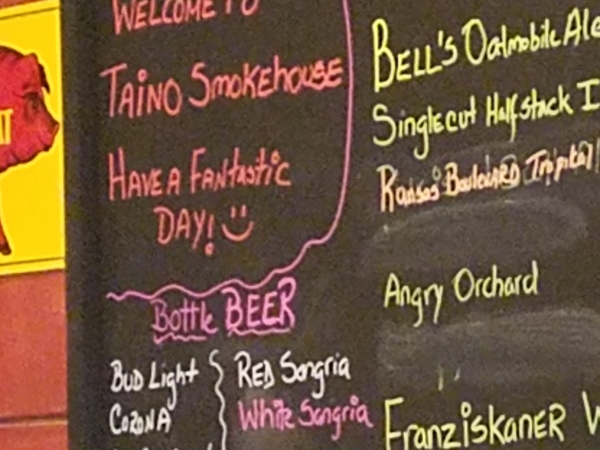 WELCOME TO
TAINO SMOKEHOUSE
HAVE A FANTASTIC
DAY!
Bottle BEER
BUD Light
CORONA
RED Sangria
White Sangria
BELL'S Oatmobile Ale
Singlecut Halfstack I
Kansas Boulevard Tropical
Angry Orchard
Franziskaner W